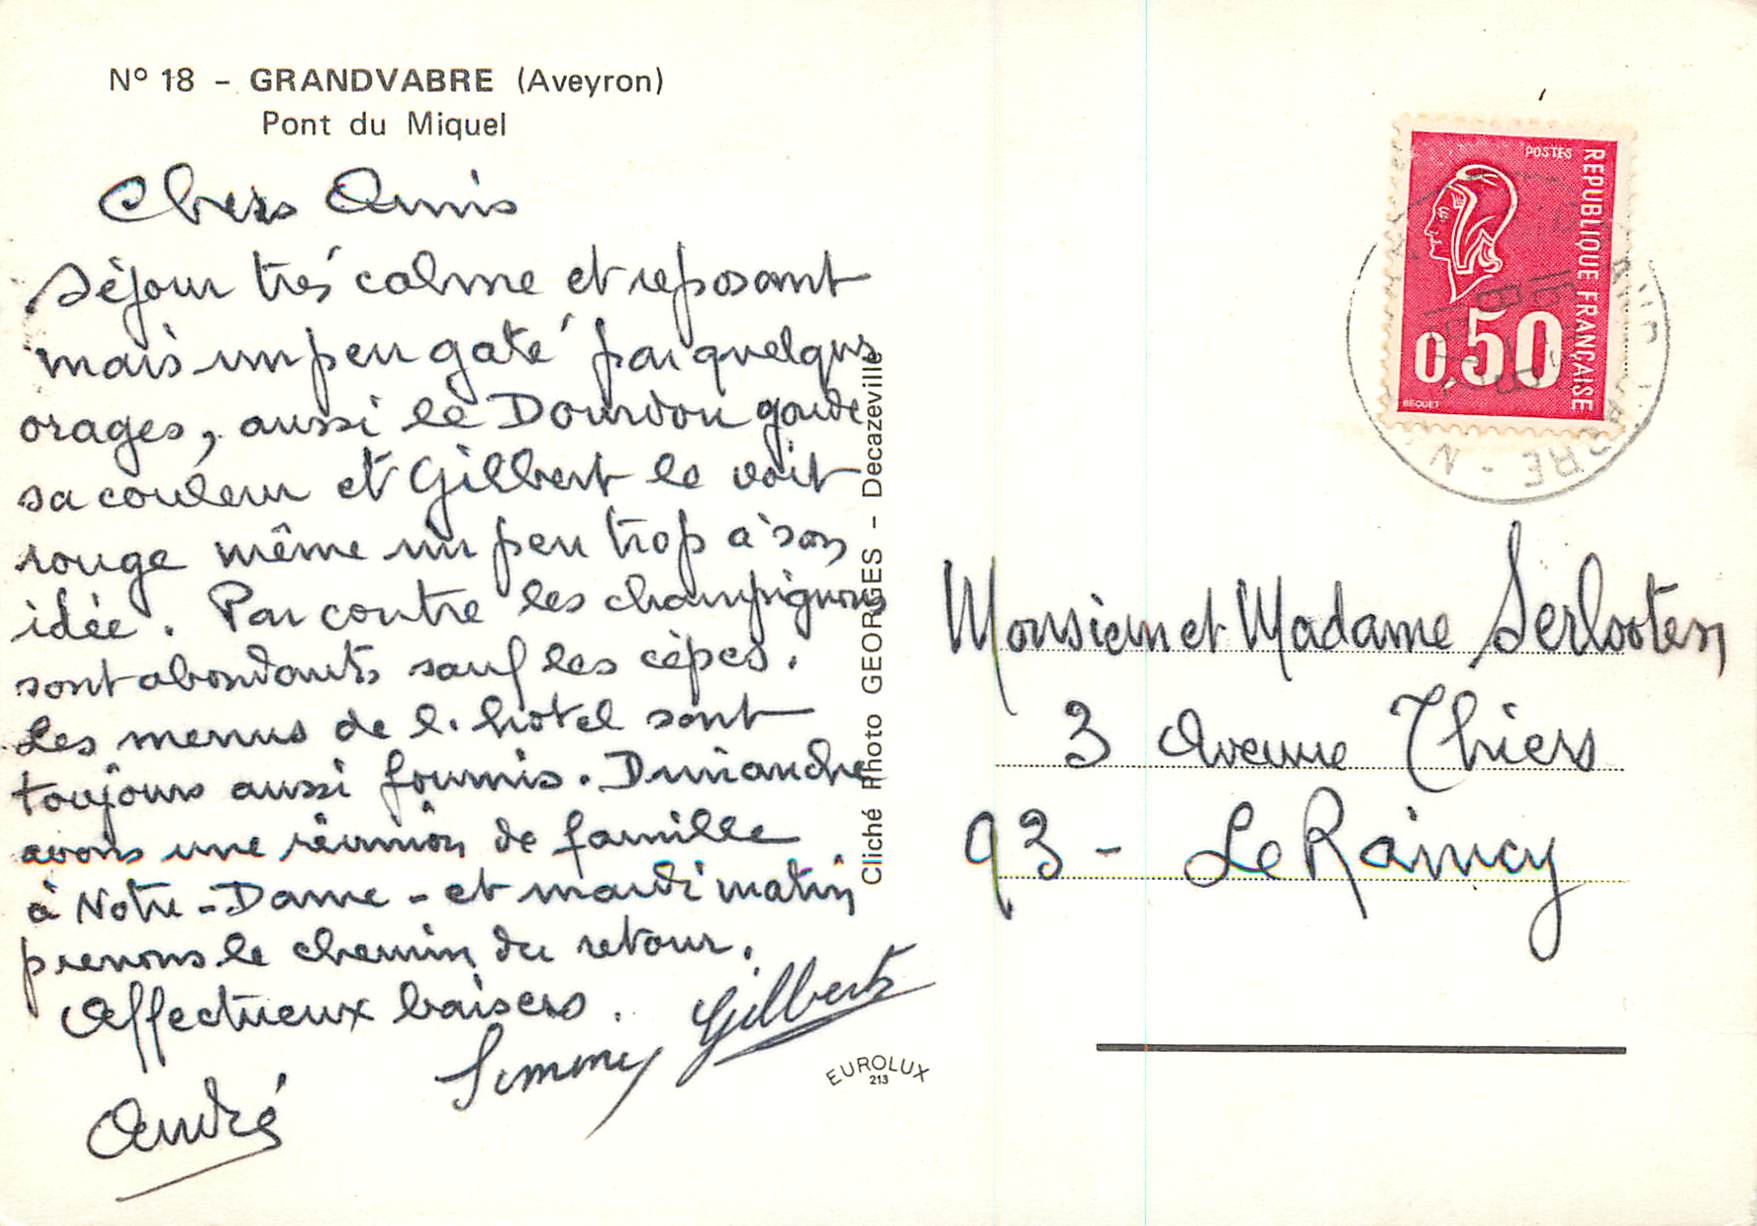 N° 18 - GRANDVABRE (Aveyron)
Pont du Miquel
Chers Amis
Séjour très calme et reposant
mais un peu gaté par quelques
orages, aussi le Dourdou garde
sa couleur et Gilbert le voit
rouge même un peu trop à son
idée. Par contre les champignons
sont abondants sauf les cèpes.
Les menus de l'hôtel sont
toujours aussi fournis. Dimanche
avons une réunion de famille
à Notre-Dame - et mardi matin
prenons le chemin du retour.
Affectueux baisers.
Simone Gilbert
André
Cliché Photo GEORGES - Decazeville
EUROLUX
213
POSTES
REPUBLIQUE FRANÇAISE
0,50
BEQUET
Monsieur et Madame Serlooten
3 Avenue Thiers
93 - Le Raincy